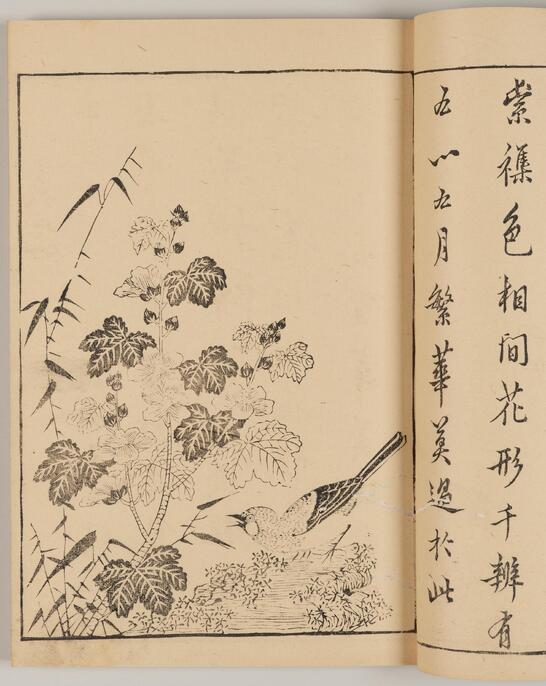 紫襍色相間花形千辨有
五心五月繁華莫過於此